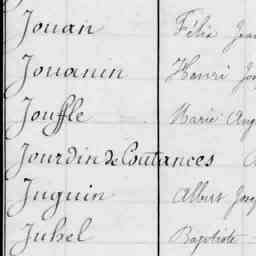 Jouan Félix Jean
Jouanin Henri
Jouffle Marie Aug
Jourdin de Coutances
Juguin Albert Jose
Juhel Baptiste